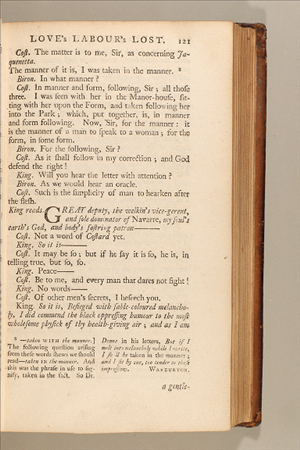 LOVE's LABOUR's LOST. 121
Cost. The matter is to me, Sir, as concerning Ja-
quenetta.
The manner of it is, I was taken in the manner. ⁸
Biron. In what manner?
Cost. In manner and form, following, Sir; all those
three. I was seen with her in the Manor-house, sit-
ting with her upon the Form, and taken following her
into the Park; which, put together, is, in manner
and form following. Now, Sir, for the manner: it
is the manner of a man to speak to a woman; for the
form, in some form.
Biron. For the following, Sir?
Cost. As it shall follow in my correction; and God
defend the right!
King. Will you hear the letter with attention?
Biron. As we would hear an oracle.
Cost. Such is the simplicity of man to hearken after
the flesh.
King reads. GREAT deputy, the welkin's vice-gerent,
and sole dominator of Navarre, my soul's
earth's God, and body's fostring patron——
Cost. Not a word of Costard yet.
King. So it is——
Cost. It may be so; but if he say it is so, he is, in
telling true, but so, so.
King. Peace——
Cost. Be to me, and every man that dares not fight!
King. No words——
Cost. Of other men's secrets, I beseech you.
King. So it is, Besieged with sable-coloured melancho-
ly, I did commend the black oppressing humour to the most
wholesome physick of thy health-giving air; and as I am
⁸ —taken WITH the manner.]
The following question arising
from these words shews we should
read—taken IN the manner. And
this was the phrase in use to sig-
nify, taken in the fact. So Dr.
Donne in his letters, But if I
melt into melancholy while I write,
I shall be taken in the manner;
and I sit by one, too tender to these
impressions. WARBURTON.
a gentle-